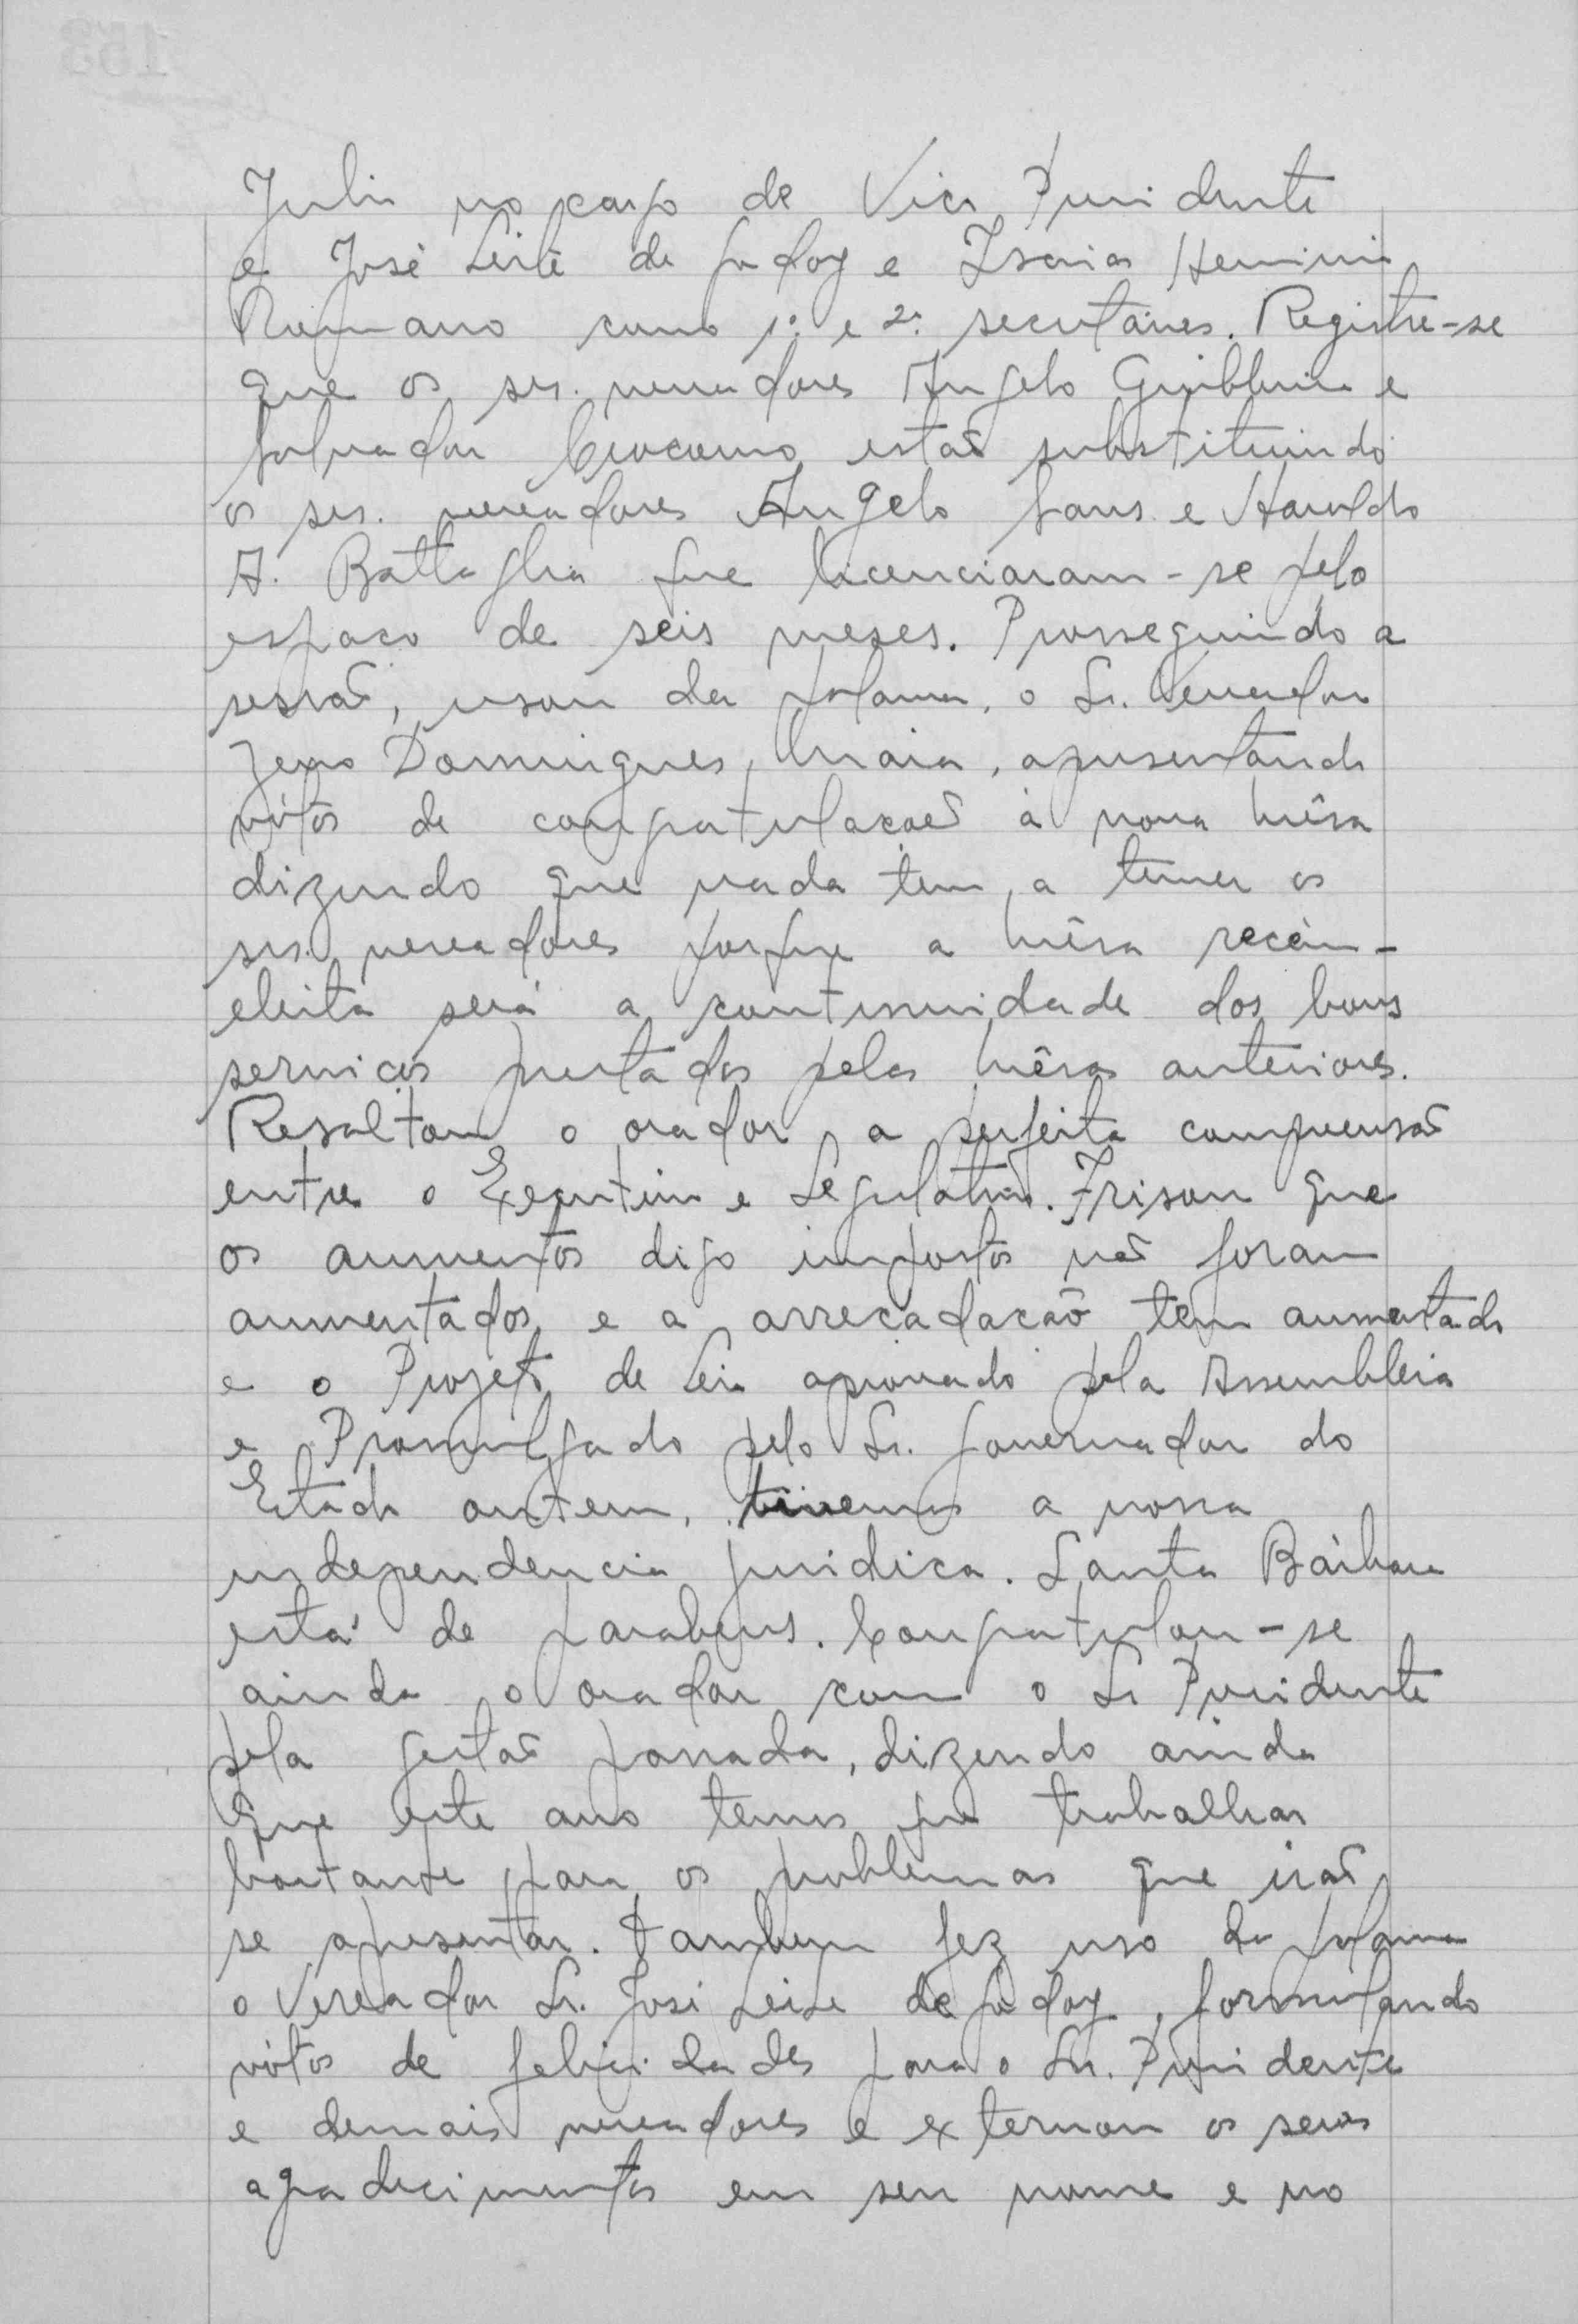 Julio no cargo de Vice Presidente
e José Leite de Godoy e Isaias Herminio
Romano como 1º e 2º secretários. Registre-se
que os srs. vereadores Angelo Giubbina e
Salvador Crocomo estão substituindo
os srs. vereadores Angelo Sans e Haroldo
A. Battaglia que licenciaram-se pelo
espaço de seis meses. Prosseguindo a
sessão, usou da palavra, o Sr. Vereador
Zeno Domingues Maia, apresentando
vótos de congratulações à nova mêsa
dizendo que nada tem a temer os
srs. vereadores porque a mêsa recém-
eleita será a continuidade dos bons
serviços prestados pelas mêsas anteriores.
Resaltou o orador, a perfeita compreensão
entre o Executivo e Legislativo. Frisou que
os aumentos digo impostos não foram
aumentados e a arrecadação tem aumentado
e o Projeto de Lei aprovado pela Assembleia
e Promulgado pelo Sr. Governador do
Estado ontem, tivemos a nossa
independencia juridica. Santa Bárbara
está de parabens. Congratulou-se
ainda o orador com o Sr Presidente
pela gestão passada, dizendo ainda
que este ano temos que trabalhar
bastante para os problemas que irão
se apresentar. Tambem fez uso da palavra
o Vereador Sr. José Leite de Godoy, formulando
vótos de felicidades para o Sr. Presidente
e demais vereadores e externou os seus
agradecimentos em seu nome e no